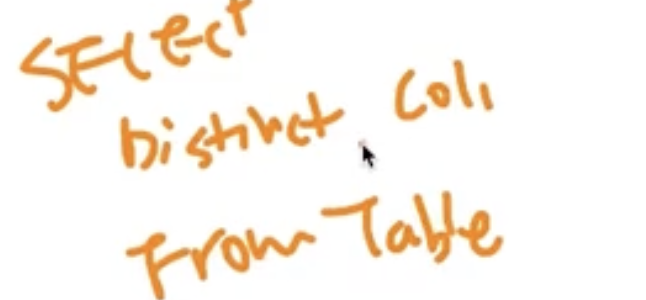 SElEct
Distinct Col1
From Table